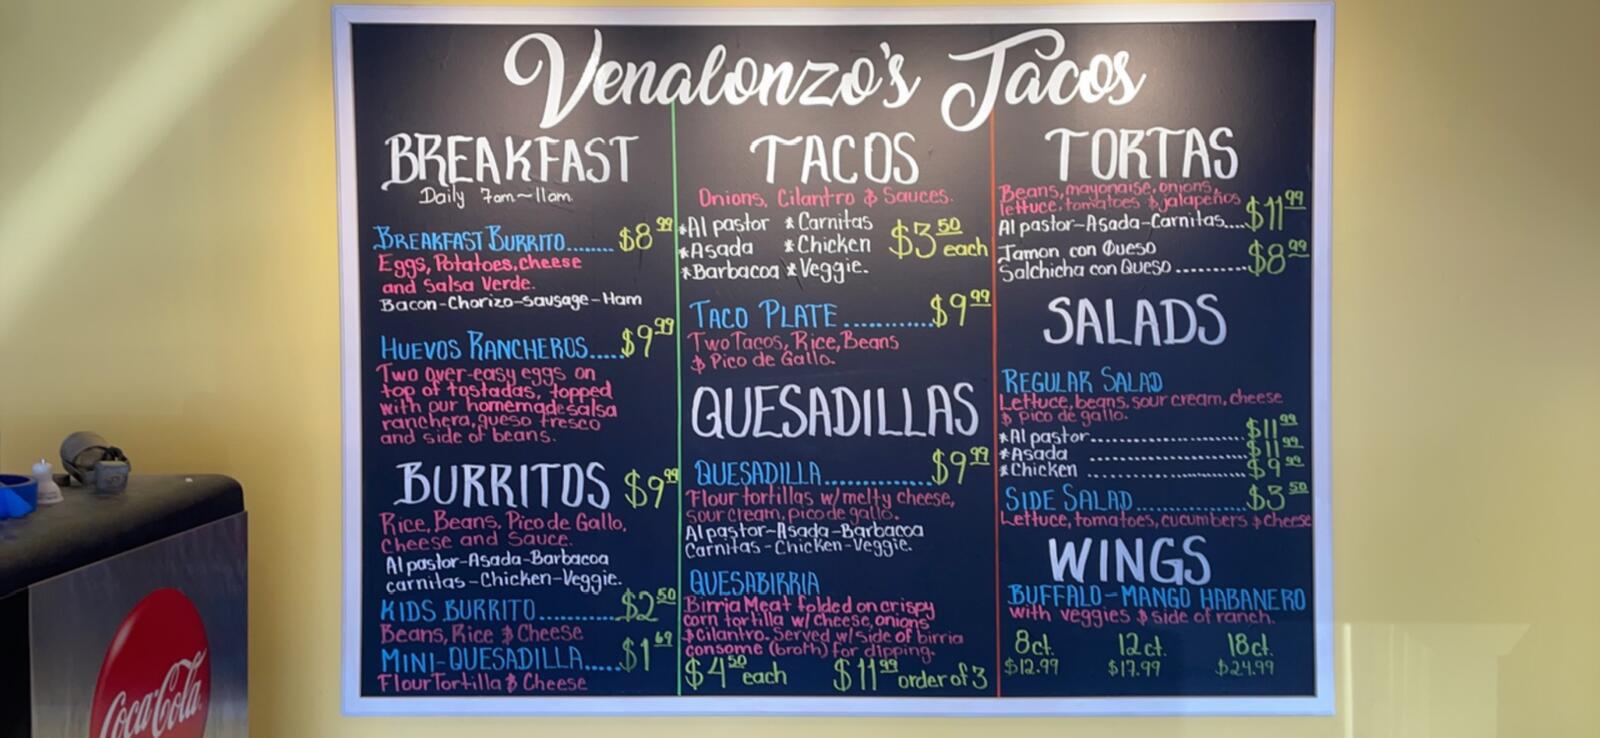 Venalonzo's Tacos
BREAKFAST
Daily 7am~11am
BREAKFAST BURRITO....... $8 99
Eggs, Potatoes, cheese
and Salsa Verde.
Bacon-Chorizo-Sausage-Ham
HUEVOS RANCHEROS..... $9 99
Two over-easy eggs on
top of tostadas, topped
with our homemade salsa
ranchera, queso fresco
and side of beans.
BURRITOS $9 99
Rice, Beans, Pico de Gallo,
Cheese and Sauce.
Al pastor-Asada-Barbacoa
carnitas-Chicken-Veggie.
KIDS BURRITO........... $2 50
Beans, Rice & Cheese
MINI-QUESADILLA..... $1 69
Flour Tortilla & Cheese
TACOS
Onions, Cilantro & Sauces.
*Al pastor *Carnitas
*Asada *Chicken
*Barbacoa *Veggie.
$3 50 each
TACO PLATE............ $9 99
Two Tacos, Rice, Beans
& Pico de Gallo.
QUESADILLAS
QUESADILLA.............. $9 99
Flour tortillas w/ melty cheese,
sour cream, pico de gallo.
Al pastor-Asada-Barbacoa
Carnitas-Chicken-Veggie.
QUESABIRRIA
Birria Meat folded on crispy
corn tortilla w/ cheese, onions
& Cilantro. Served w/ side of birria
consome (broth) for dipping.
$4 50 each $11 99 order of 3
TORTAS
Beans, mayonaise, onions,
lettuce, tomatoes & jalapeños
Al pastor-Asada-Carnitas.... $11 99
Jamon con Queso
Salchicha con Queso.......... $8 99
SALADS
REGULAR SALAD
Lettuce, beans, sour cream, cheese
& pico de gallo.
*Al pastor........................ $11 99
*Asada ........................ $11 99
*Chicken ........................ $9 99
SIDE SALAD................ $3 50
Lettuce, tomatoes, cucumbers & cheese
WINGS
BUFFALO-MANGO HABANERO
with veggies & side of ranch.
8ct. 12ct. 18ct.
$12.99 $17.99 $24.99
Coca-Cola